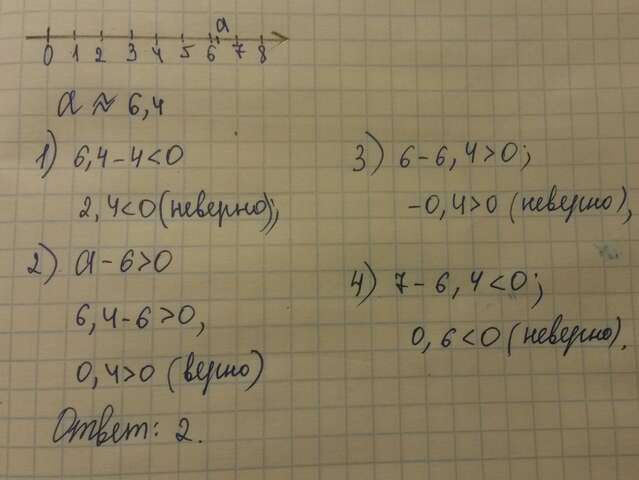 a
0 1 2 3 4 5 6 7 8
a ≈ 6,4
1) 6,4-4<0
2,4<0 (неверно);
2) a-6>0
6,4-6>0,
0,4>0 (верно)
3) 6-6,4>0;
-0,4>0 (неверно),
4) 7-6,4<0;
0,6<0 (неверно).
Ответ: 2.